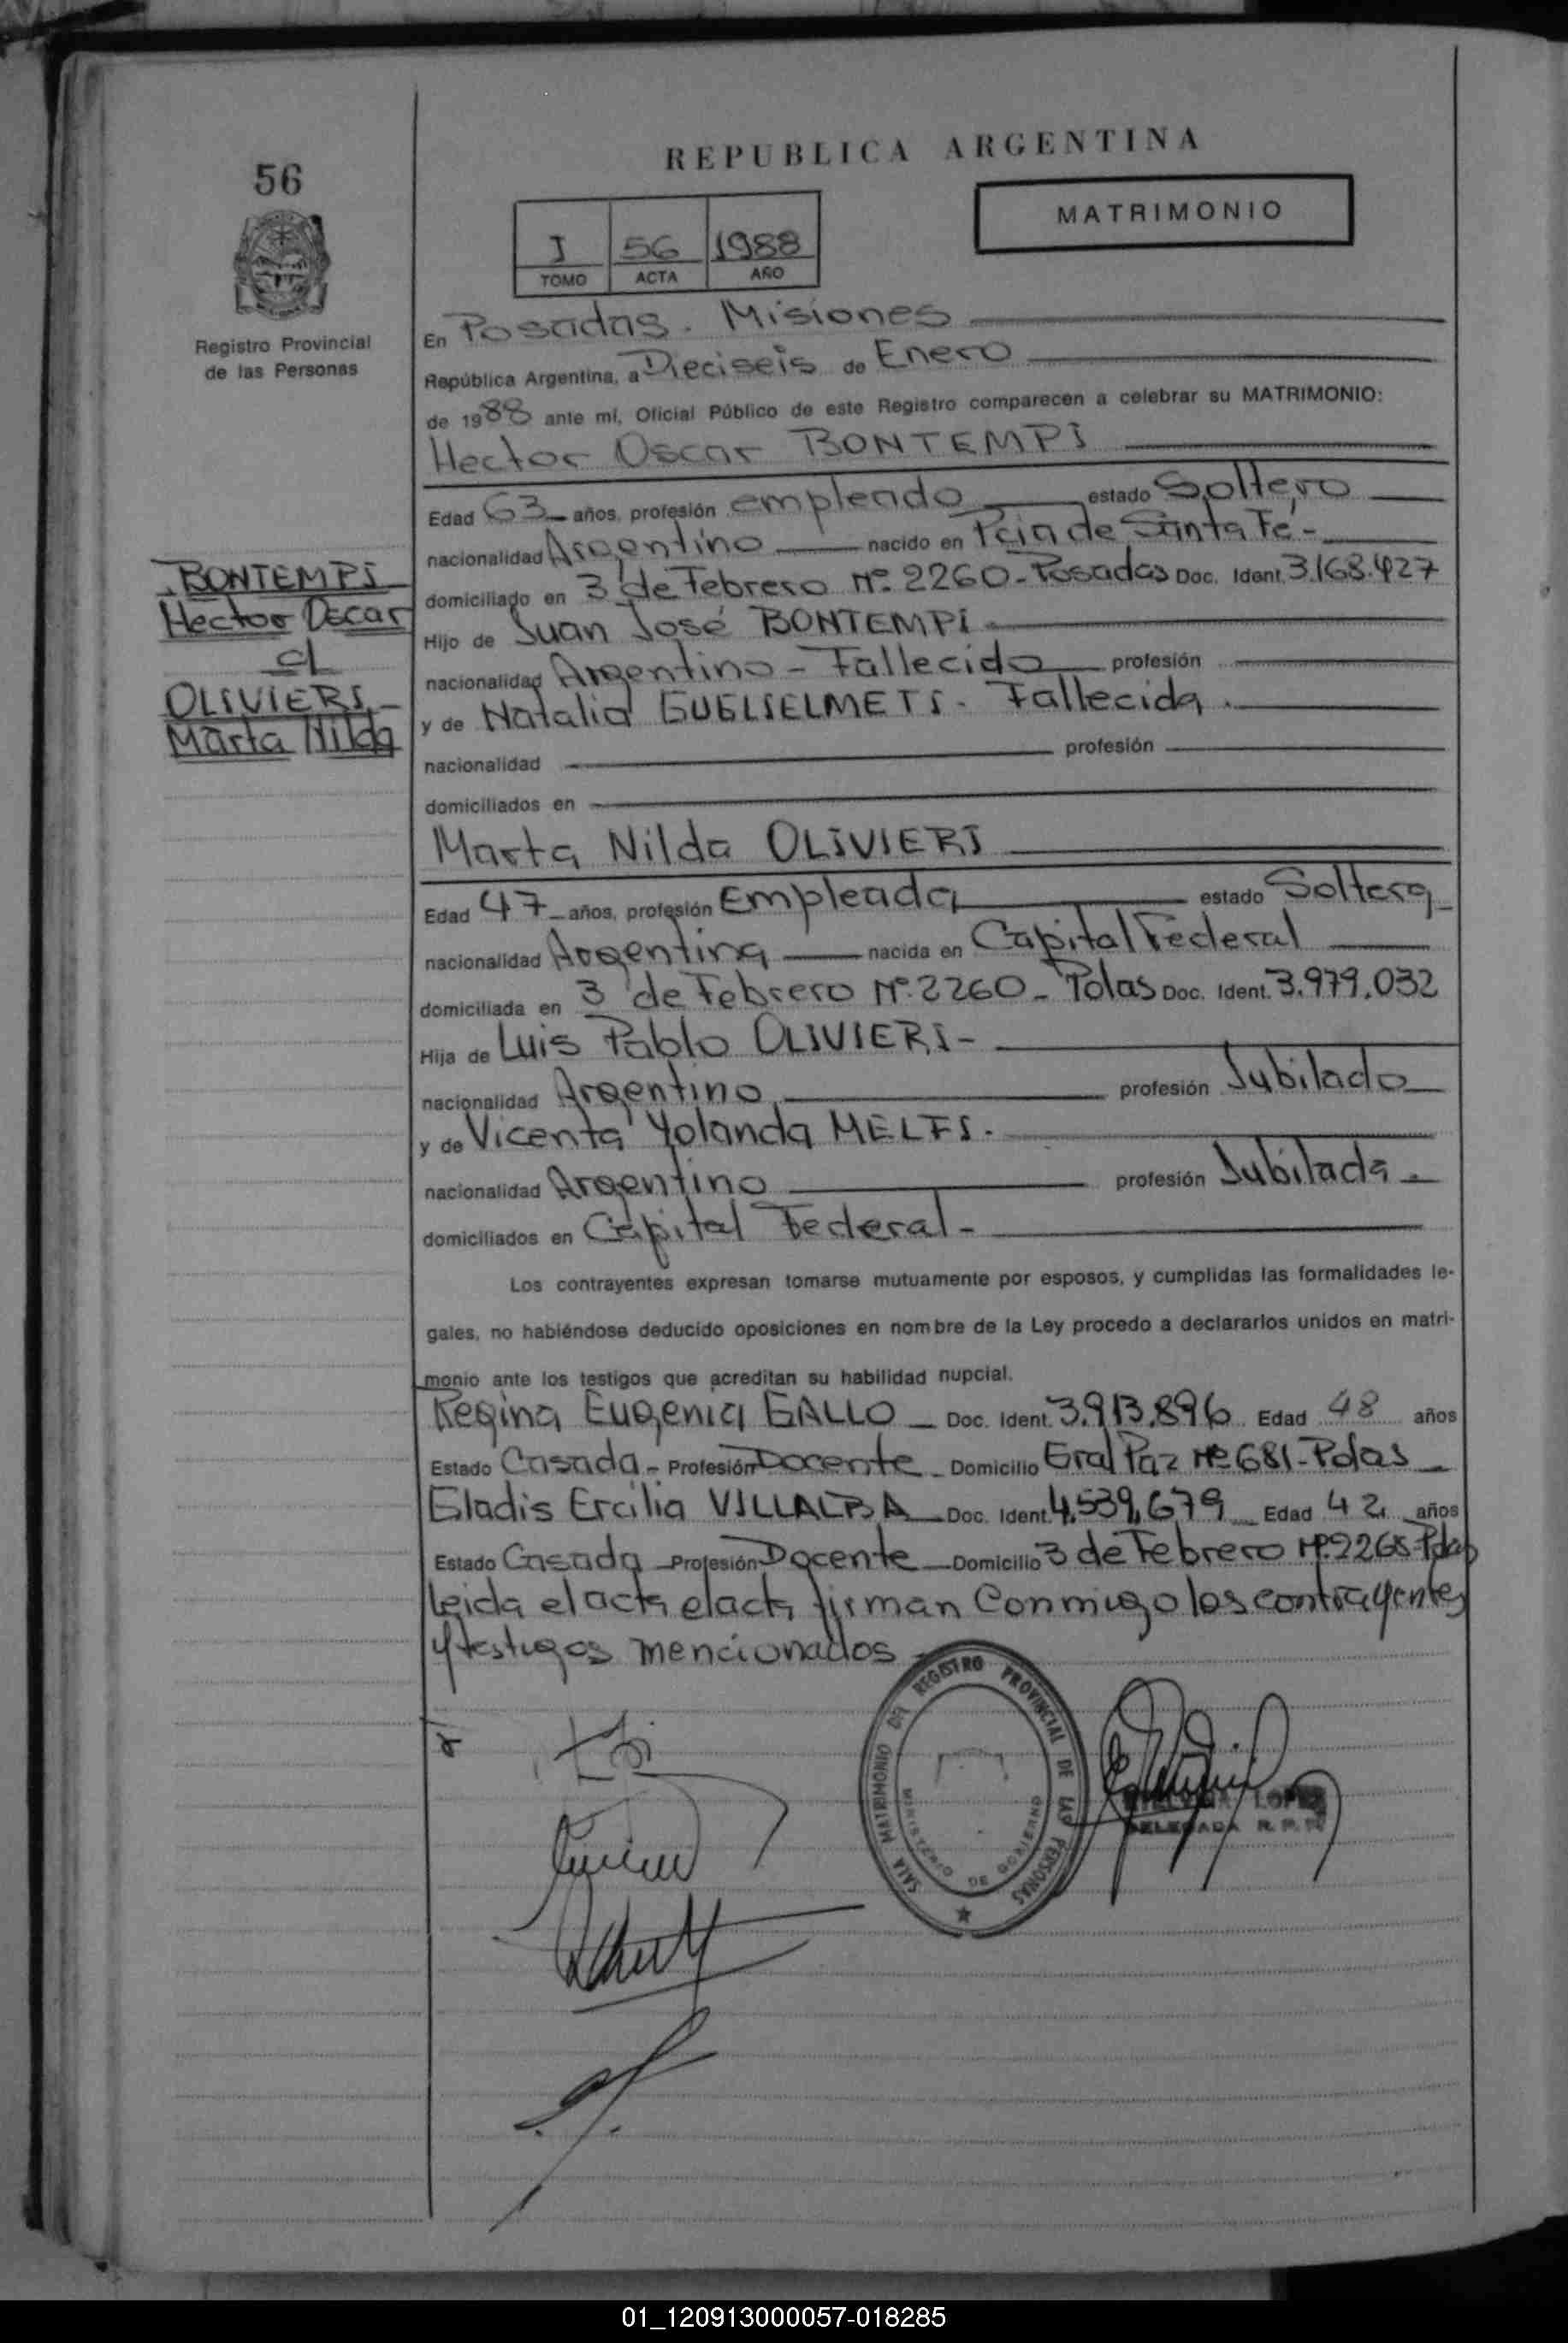 REPUBLICA ARGENTINA
56
MATRIMONIO
I 56 1988
TOMO ACTA AÑO
Registro Provincial
de las Personas
En Posadas. Misiones
República Argentina, a Dieciseis de Enero
de 1988 ante mí, Oficial Público de este Registro comparecen a celebrar su MATRIMONIO:
Hector Oscar BONTEMPI
Edad 63 años, profesión empleado estado Soltero
nacionalidad Argentino nacido en Pcia de Santa Fé -
domiciliado en 3 de Febrero Nº 2260 - Posadas Doc. Ident. 3.168.427
Hijo de Juan José BONTEMPI
nacionalidad Argentino - Fallecido profesión
y de Natalia GUGLIELMETI. Fallecida.
nacionalidad profesión
domiciliados en
BONTEMPI
Hector Oscar
c/
OLIVIERI
Marta Nilda
Marta Nilda OLIVIERI
Edad 47 años, profesión Empleada estado Soltera
nacionalidad Argentina nacida en Capital Federal
domiciliada en 3 de Febrero Nº 2260 - Pdas Doc. Ident. 3.979.032
Hija de Luis Pablo OLIVIERI -
nacionalidad Argentino profesión Jubilado
y de Vicenta Yolanda MELFI.
nacionalidad Argentino profesión Jubilada.
domiciliados en Capital Federal -
Los contrayentes expresan tomarse mutuamente por esposos, y cumplidas las formalidades le-
gales, no habiéndose deducido oposiciones en nombre de la Ley procedo a declararlos unidos en matri-
monio ante los testigos que acreditan su habilidad nupcial.
Regina Eugenia GALLO - Doc. Ident. 3.913.896 Edad 48 años
Estado Casada - Profesión Docente - Domicilio Gral Paz Nº 681 - Pdas
Gladis Ercilia VILLALBA - Doc. Ident. 4.539.679 Edad 42 años
Estado Casada - Profesión Docente - Domicilio 3 de Febrero Nº 2268 - Pdas
Leida el acta el acta firman Conmigo los contrayentes
y testigos mencionados
SALA MATRIMONIO DEL REGISTRO PROVINCIAL DE LAS PERSONAS
MINISTERIO DE GOBIERNO
LOPEZ
DELEGADA R. P. P.
01_120913000057-018285